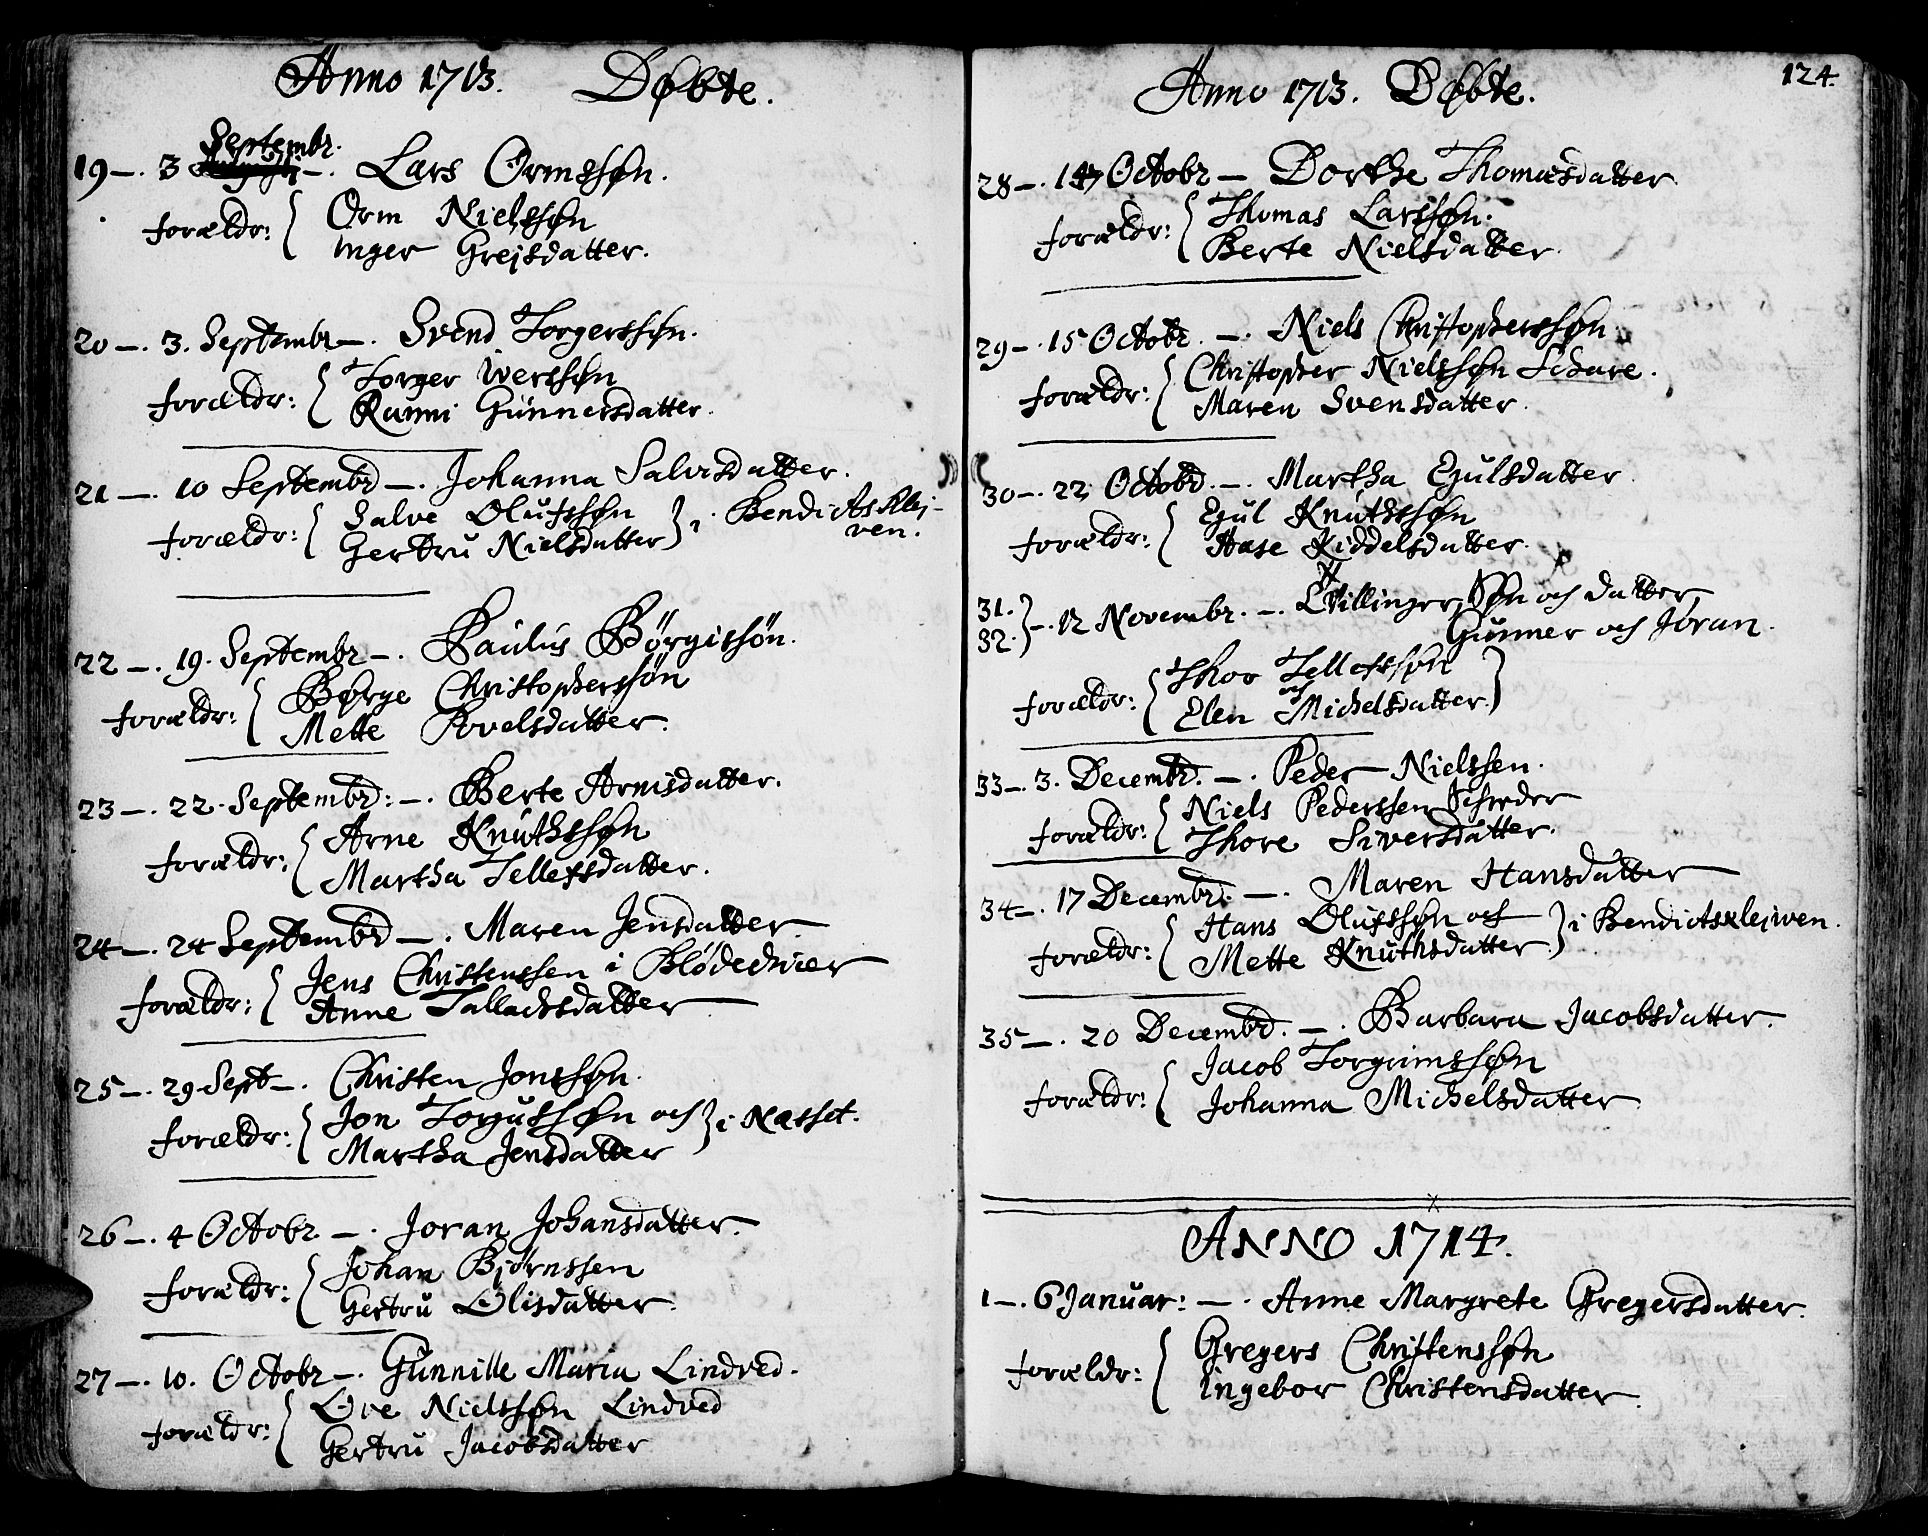 Anno 1713. Døbte.
Septembr.
19 –. 3 –. Lars Ormssøn.
forældr: { Orm Nielssøn
Inger Grejsdatter.
20 –. 3. Septembr –. Svend Torgerssøn.
forældr: { Torger Iverssøn
Runni Gunnersdatter.
21 –. 10 Septembr –. Johanna Salvisdatter.
forældr: { Salve Olufssøn
Gertru Nielsdatter } i Bendictsklej-
ven.
22 –. 19. Septembr –. Paulus Børgissøn.
forældr: { Børge Christopherssøn
Mette Povelsdatter.
23 –. 22. Septembr: –. Berte Arnisdatter.
forældr: { Arne Knuthssøn
Martha Tellefsdatter.
24 –. 24 Septembr –. Maren Jensdatter
forældr: { Jens Christenssen i Blødedkier
Anne Tallachsdatter
25 –. 29 Sept –. Christen Jonssøn.
forældr: { Jon Torgutssøn och } i Næsset.
Martha Jensdatter
26 –. 4 Octobr –. Joran Johansdatter.
forældr: { Johan Bjørnssen
Gertru Olisdatter.
27 –. 10. Octobr –. Gunnille Maria Lindved.
forældr: { Ove Nielssøn Lindved
Gertru Jacobsdatter
Anno 1713. Døbte. 124.
28 –. Octobr – Dorthe Thomæsdatter.
forældr: { Thomas Larssøn.
Berte Nielsdatter.
29 –. 15 Octobr. –. Niels Christopherssøn
forældr: { Christopher Nielssøn Schare.
Maren Svensdatter.
30 –. 22 Octobr. –. Martha Egulsdatter.
forældr: { Egul Knuthssøn
Aase Kiddelsdatter.
31. 32. } –. 12 Novembr. –. Tvillinger, Søn och datter
Gunner och Joran.
forældr: { Thor Tellefssøn
och
Elen Michelsdatter. }
33 –. 3. Decembr. –. Peder Nielssen.
forældr: { Niels Pederssen Schrøder
Thore Siversdatter.
34 –. 17 Decembr. –. Maren Hansdatter
forældr: { Hans Olufssøn och } i Bendictsklejven.
Mette Knuthsdatter
35 –. 20 Decembr. –. Barbara Jacobsdatter.
forældr: { Jacob Torgrimssøn
Johanna Michelsdatter
ANNO 1714.
1 –. 6 Januar: –. Anne Margrete Gregersdatter.
forældr: { Gregers Christenssøn
Ingebor Christensdatter.